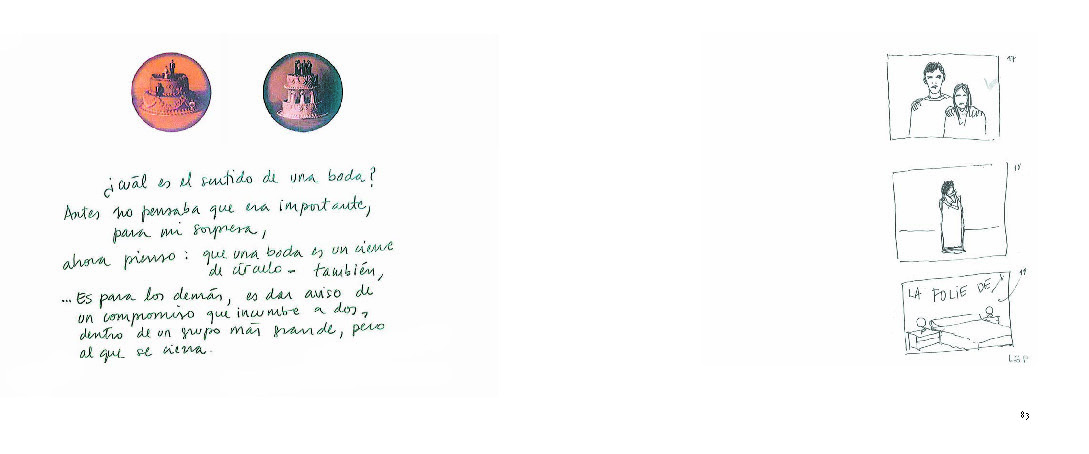 ¿cuál es el sentido de una boda?
Antes no pensaba que era importante,
para mi sorpresa,
ahora pienso: que una boda es un cierre
de círculo - también,
... Es para los demás, es dar aviso de
un compromiso que incumbe a dos,
dentro de un grupo más grande, pero
al que se cierra.
17
18
19
LA FOLIE DE
83